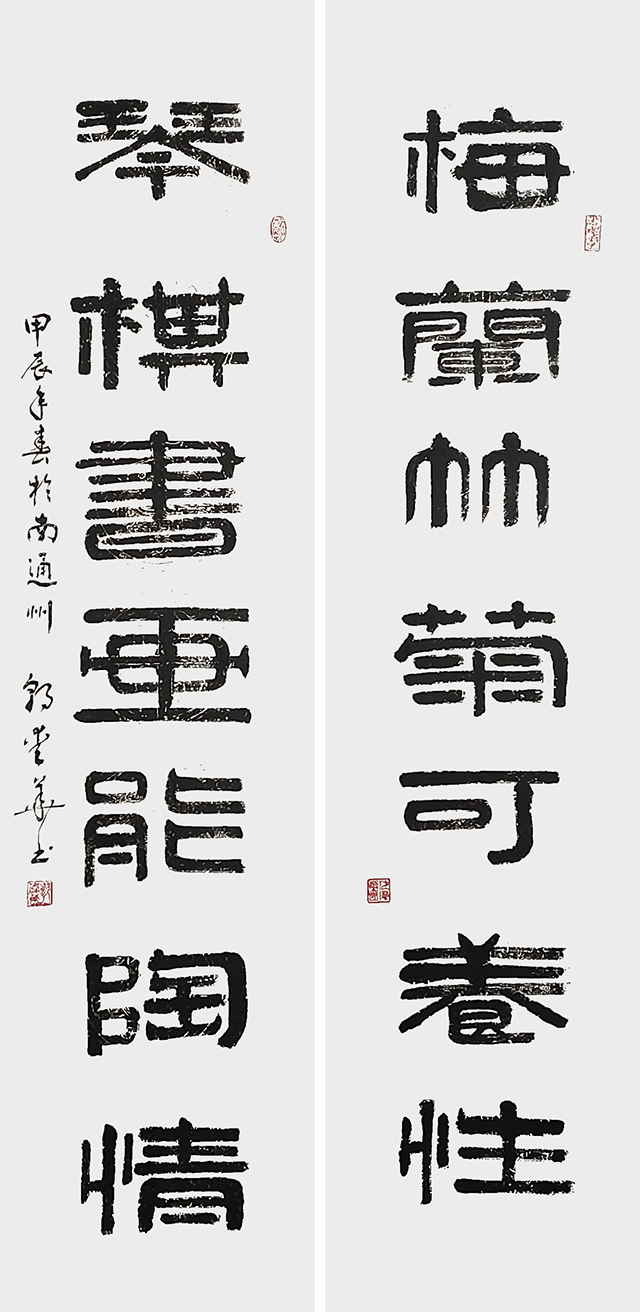 梅蘭竹菊可養性
琴棋書画能陶情
甲辰年春於南通州
華书